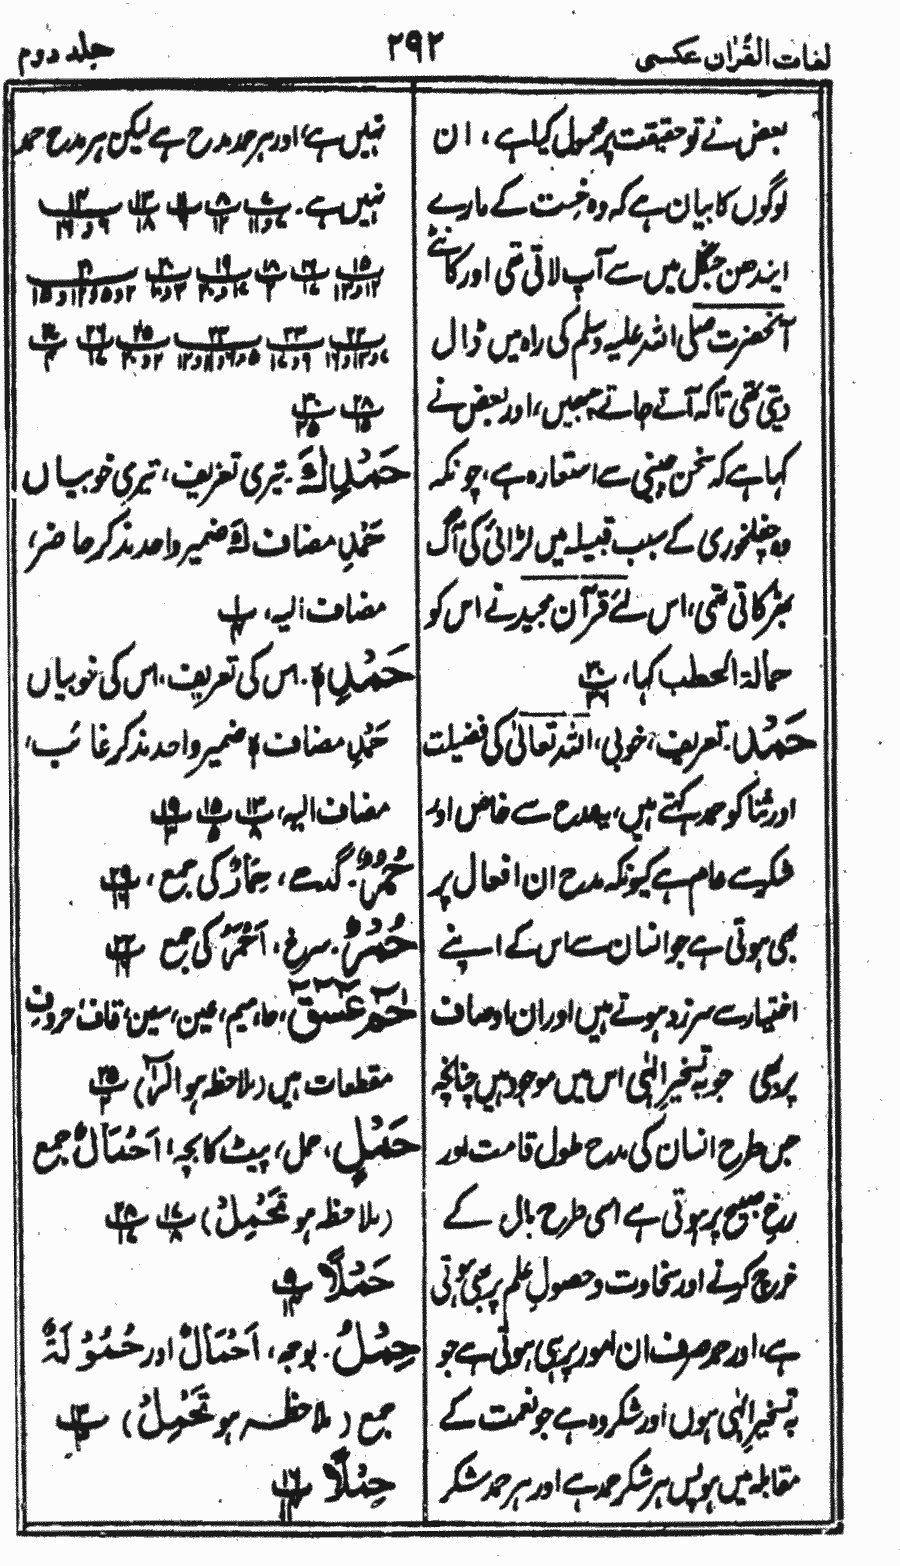 لغات القرٰان عکسی
۲۹۲
جلد دوم
بعض نے تو حقیقت پر محمول کیا ہے ، ان
لوگوں کا بیان ہے کہ وہ خست کے مارے
ایندھن جنگل میں سے آپ لاتی تھی اور کانٹے
آنحضرت صلی اللہ علیہ وسلم کی راہ میں ڈال
دیتی تھی تاکہ آتے جاتے چبھیں، اور بعض نے
کہا ہے کہ سخن چینی سے استعارہ ہے، چونکہ
وہ چغلخوری کے سبب قبیلہ میں لڑائی کی آگ
بھڑکاتی تھی، اس لئے قرآن مجید نے اس کو
حمالۃ الحطب کہا، ۳۰
حَمْدُ۔ تعریف، خوبی، اللہ تعالیٰ کی فضیلت
اور ثنا کو حمد کہتے ہیں، یہ مدح سے خاص اور
شکر سے عام ہے کیونکہ مدح ان افعال پر
بھی ہوتی ہے جو انسان سے اس کے اپنے
اختیار سے سرزد ہوتے ہیں اور ان اوصاف
پر بھی جو بہ تسخیر الٰہی اس میں موجود ہیں چنانچہ
جس طرح انسان کی مدح طول قامت اور
رخ صبیح پر ہوتی ہے اسی طرح بال کے
خرچ کرنے اور سخاوت و حصولِ علم پر بھی ہوتی
ہے، اور حمد صرف ان امور پر ہی ہوتی ہے جو
بہ تسخیر الٰہی ہوں اور شکر وہ ہے جو نعمت کے
مقابلہ میں ہو پس ہر شکر حمد ہے اور ہر حمد شکر
نہیں ہے، اور ہر حمد مدح ہے لیکن ہر مدح حمد
نہیں ہے۔
حَمْدِكَ۔ تیری تعریف، تیری خوبیاں
حَمْدِ مضاف كَ ضمیر واحد مذکر حاضر،
مضاف الیہ، ۱
حَمْدِهٖ۔ اس کی تعریف، اس کی خوبیاں
حَمْدِ مضاف هٖ ضمیر واحد مذکر غائب،
مضاف الیہ، ۱۳/۸ ۱۵/۵ ۱۹/۳
حُمُرٌ۔ گدھے، حِمَارٌ کی جمع ، ۲۹/۱۶
حُمْرٌ۔ سرخ، اَحْمَرُ کی جمع ۲۲/۱۶
حٰمٓ عٓسٓقٓ، حا، میم، عین، سین، قاف، حروفِ
مقطعات ہیں (ملاحظہ ہو الٓرٰ) ۲۵/۲
حَمْلٍ، حمل، پیٹ کا بچہ، اَحْمَالٌ جمع
(ملاحظہ ہو تَحْمِلُ) ۱۷/۸ ۲۸/۱۷
حَمْلًا ۹/۱۴
حِمْلُ۔ بوجھ، اَحْمَالٌ اور حُمُوْلَةٌ
جمع (ملاحظہ ہو تَحْمِلُ) ۱۳
حِمْلًا ۱۶